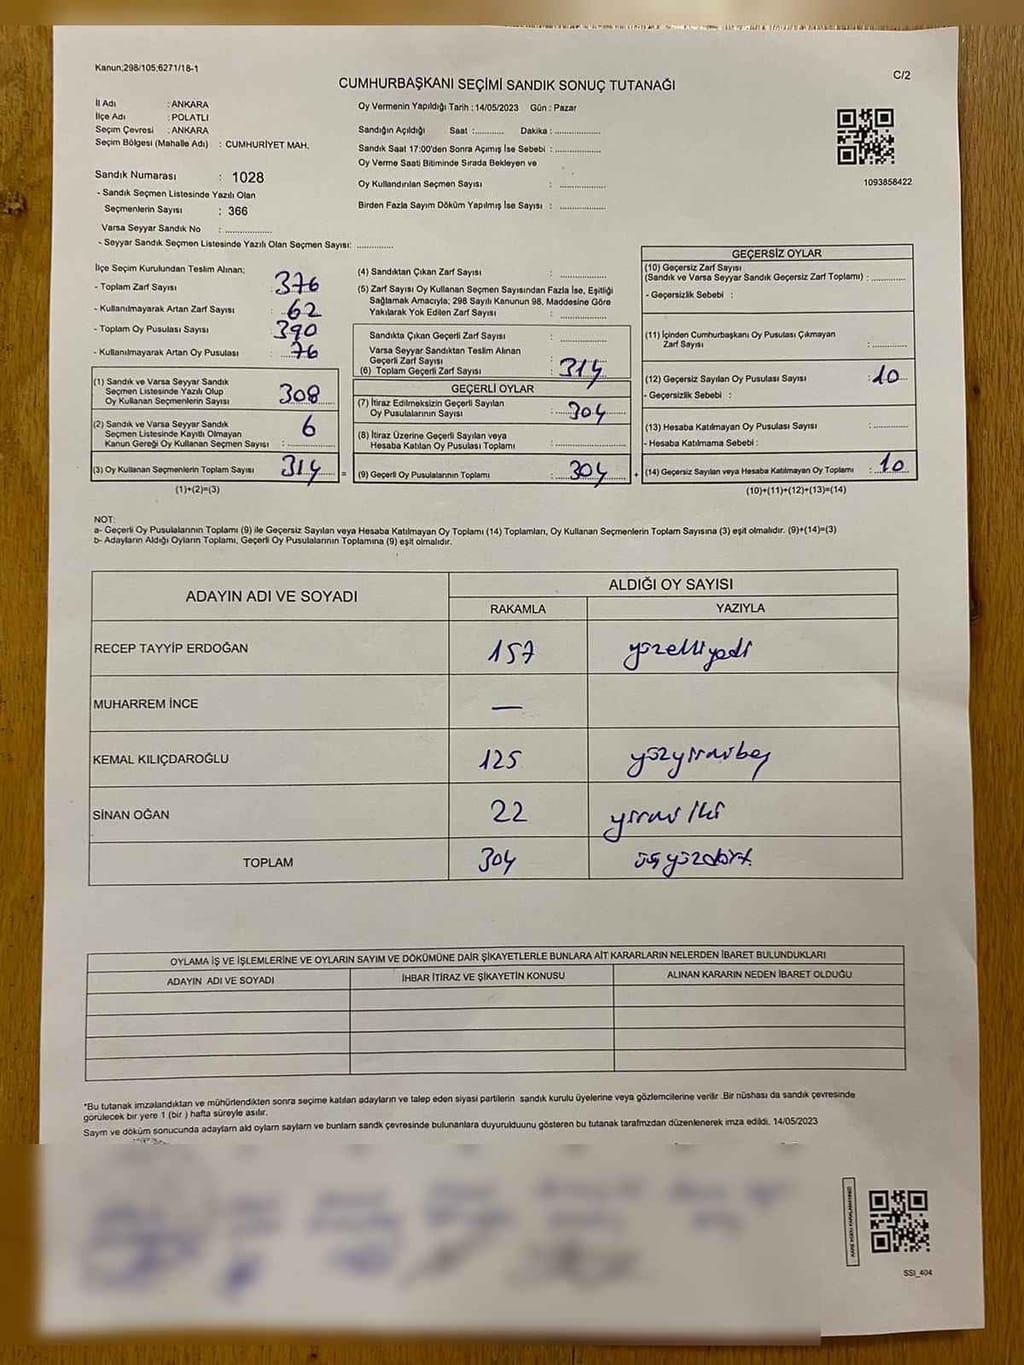 Kanun;298/105;6271/18-1
C/2
CUMHURBAŞKANI SEÇİMİ SANDIK SONUÇ TUTANAĞI
İl Adı : ANKARA
İlçe Adı : POLATLI
Seçim Çevresi : ANKARA
Seçim Bölgesi (Mahalle Adı) : CUMHURİYET MAH.
Sandık Numarası : 1028
- Sandık Seçmen Listesinde Yazılı Olan
Seçmenlerin Sayısı : 366
Varsa Seyyar Sandık No : ..............
- Seyyar Sandık Seçmen Listesinde Yazılı Olan Seçmen Sayısı: ..............
Oy Vermenin Yapıldığı Tarih : 14/05/2023 Gün : Pazar
Sandığın Açıldığı Saat :............ Dakika : ..............
Sandık Saat 17:00'den Sonra Açımış İse Sebebi : ..............
Oy Verme Saati Bitiminde Sırada Bekleyen ve
Oy Kullandırılan Seçmen Sayısı : ..............
Birden Fazla Sayım Döküm Yapılmış İse Sayısı : ..............
1093858422
İlçe Seçim Kurulundan Teslim Alınan;
- Toplam Zarf Sayısı : 376
- Kullanılmayarak Artan Zarf Sayısı : 62
- Toplam Oy Pusulası Sayısı : 390
- Kullanılmayarak Artan Oy Pusulası : 76
(1) Sandık ve Varsa Seyyar Sandık
Seçmen Listesinde Yazılı Olup
Oy Kullanan Seçmenlerin Sayısı : 308
(2) Sandık ve Varsa Seyyar Sandık
Seçmen Listesinde Kayıtlı Olmayan
Kanun Gereği Oy Kullanan Seçmen Sayısı : 6
(3) Oy Kullanan Seçmenlerin Toplam Sayısı : 314 =
(1)+(2)=(3)
(4) Sandıktan Çıkan Zarf Sayısı : ..............
(5) Zarf Sayısı Oy Kullanan Seçmen Sayısından Fazla İse, Eşitliği
Sağlamak Amacıyla; 298 Sayılı Kanunun 98. Maddesine Göre
Yakılarak Yok Edilen Zarf Sayısı : ..............
Sandıkta Çıkan Geçerli Zarf Sayısı : ..............
Varsa Seyyar Sandıktan Teslim Alınan
Geçerli Zarf Sayısı : ..............
(6) Toplam Geçerli Zarf Sayısı : 314
GEÇERLİ OYLAR
(7) İtiraz Edilmeksizin Geçerli Sayılan
Oy Pusulalarının Sayısı : 304
(8) İtiraz Üzerine Geçerli Sayılan veya
Hesaba Katılan Oy Pusulası Toplamı : ..............
(9) Geçerli Oy Pusulalarının Toplamı : 304 +
GEÇERSİZ OYLAR
(10) Geçersiz Zarf Sayısı
(Sandık ve Varsa Seyyar Sandık Geçersiz Zarf Toplamı) : ............
- Geçersizlik Sebebi :
(11) İçinden Cumhurbaşkanı Oy Pusulası Çıkmayan
Zarf Sayısı : ............
(12) Geçersiz Sayılan Oy Pusulası Sayısı : 10
- Geçersizlik Sebebi :
(13) Hesaba Katılmayan Oy Pusulası Sayısı : ............
- Hesaba Katılmama Sebebi :
(14) Geçersiz Sayılan veya Hesaba Katılmayan Oy Toplamı : 10
(10)+(11)+(12)+(13)=(14)
NOT:
a- Geçerli Oy Pusulalarının Toplamı (9) ile Geçersiz Sayılan veya Hesaba Katılmayan Oy Toplamı (14) Toplamları, Oy Kullanan Seçmenlerin Toplam Sayısına (3) eşit olmalıdır. (9)+(14)=(3)
b- Adayların Aldığı Oyların Toplamı, Geçerli Oy Pusulalarının Toplamına (9) eşit olmalıdır.
ADAYIN ADI VE SOYADI
ALDIĞI OY SAYISI
RAKAMLA YAZIYLA
RECEP TAYYİP ERDOĞAN 157 yüzelliyedi
MUHARREM İNCE —
KEMAL KILIÇDAROĞLU 125 yüzyirmibeş
SİNAN OĞAN 22 yirmi iki
TOPLAM 304 üçyüzdört
OYLAMA İŞ VE İŞLEMLERİNE VE OYLARIN SAYIM VE DÖKÜMÜNE DAİR ŞİKAYETLERLE BUNLARA AİT KARARLARIN NELERDEN İBARET BULUNDUKLARI
ADAYIN ADI VE SOYADI İHBAR İTİRAZ VE ŞİKAYETİN KONUSU ALINAN KARARIN NEDEN İBARET OLDUĞU
*Bu tutanak imzalandıktan ve mühürlendikten sonra seçime katılan adayların ve talep eden siyasi partilerin sandık kurulu üyelerine veya gözlemcilerine verilir .Bir nüshası da sandık çevresinde
görülecek bir yere 1 (bir ) hafta süreyle asılır.
Sayım ve döküm sonucunda adayların ald oyların sayıları ve bunların sandk çevresinde bulunanlara duyurulduunu gösteren bu tutanak tarafmzdan düzenlenerek imza edildi. 14/05/2023
SSI_404